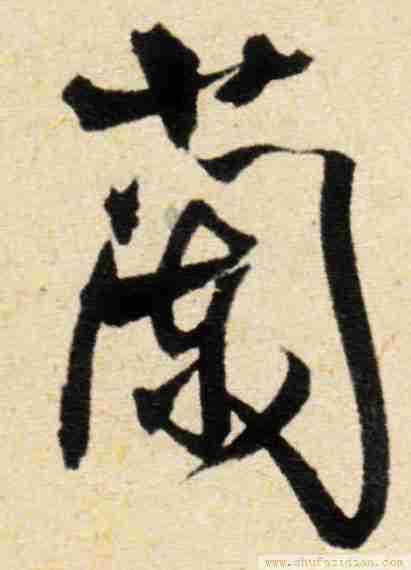 蘭
www.shufazidian.com